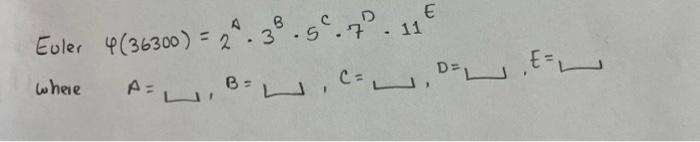 Euler φ(36300) = 2^A · 3^B · 5^C · 7^D · 11^E
where A = ⎵, B = ⎵, C = ⎵, D = ⎵, E = ⎵